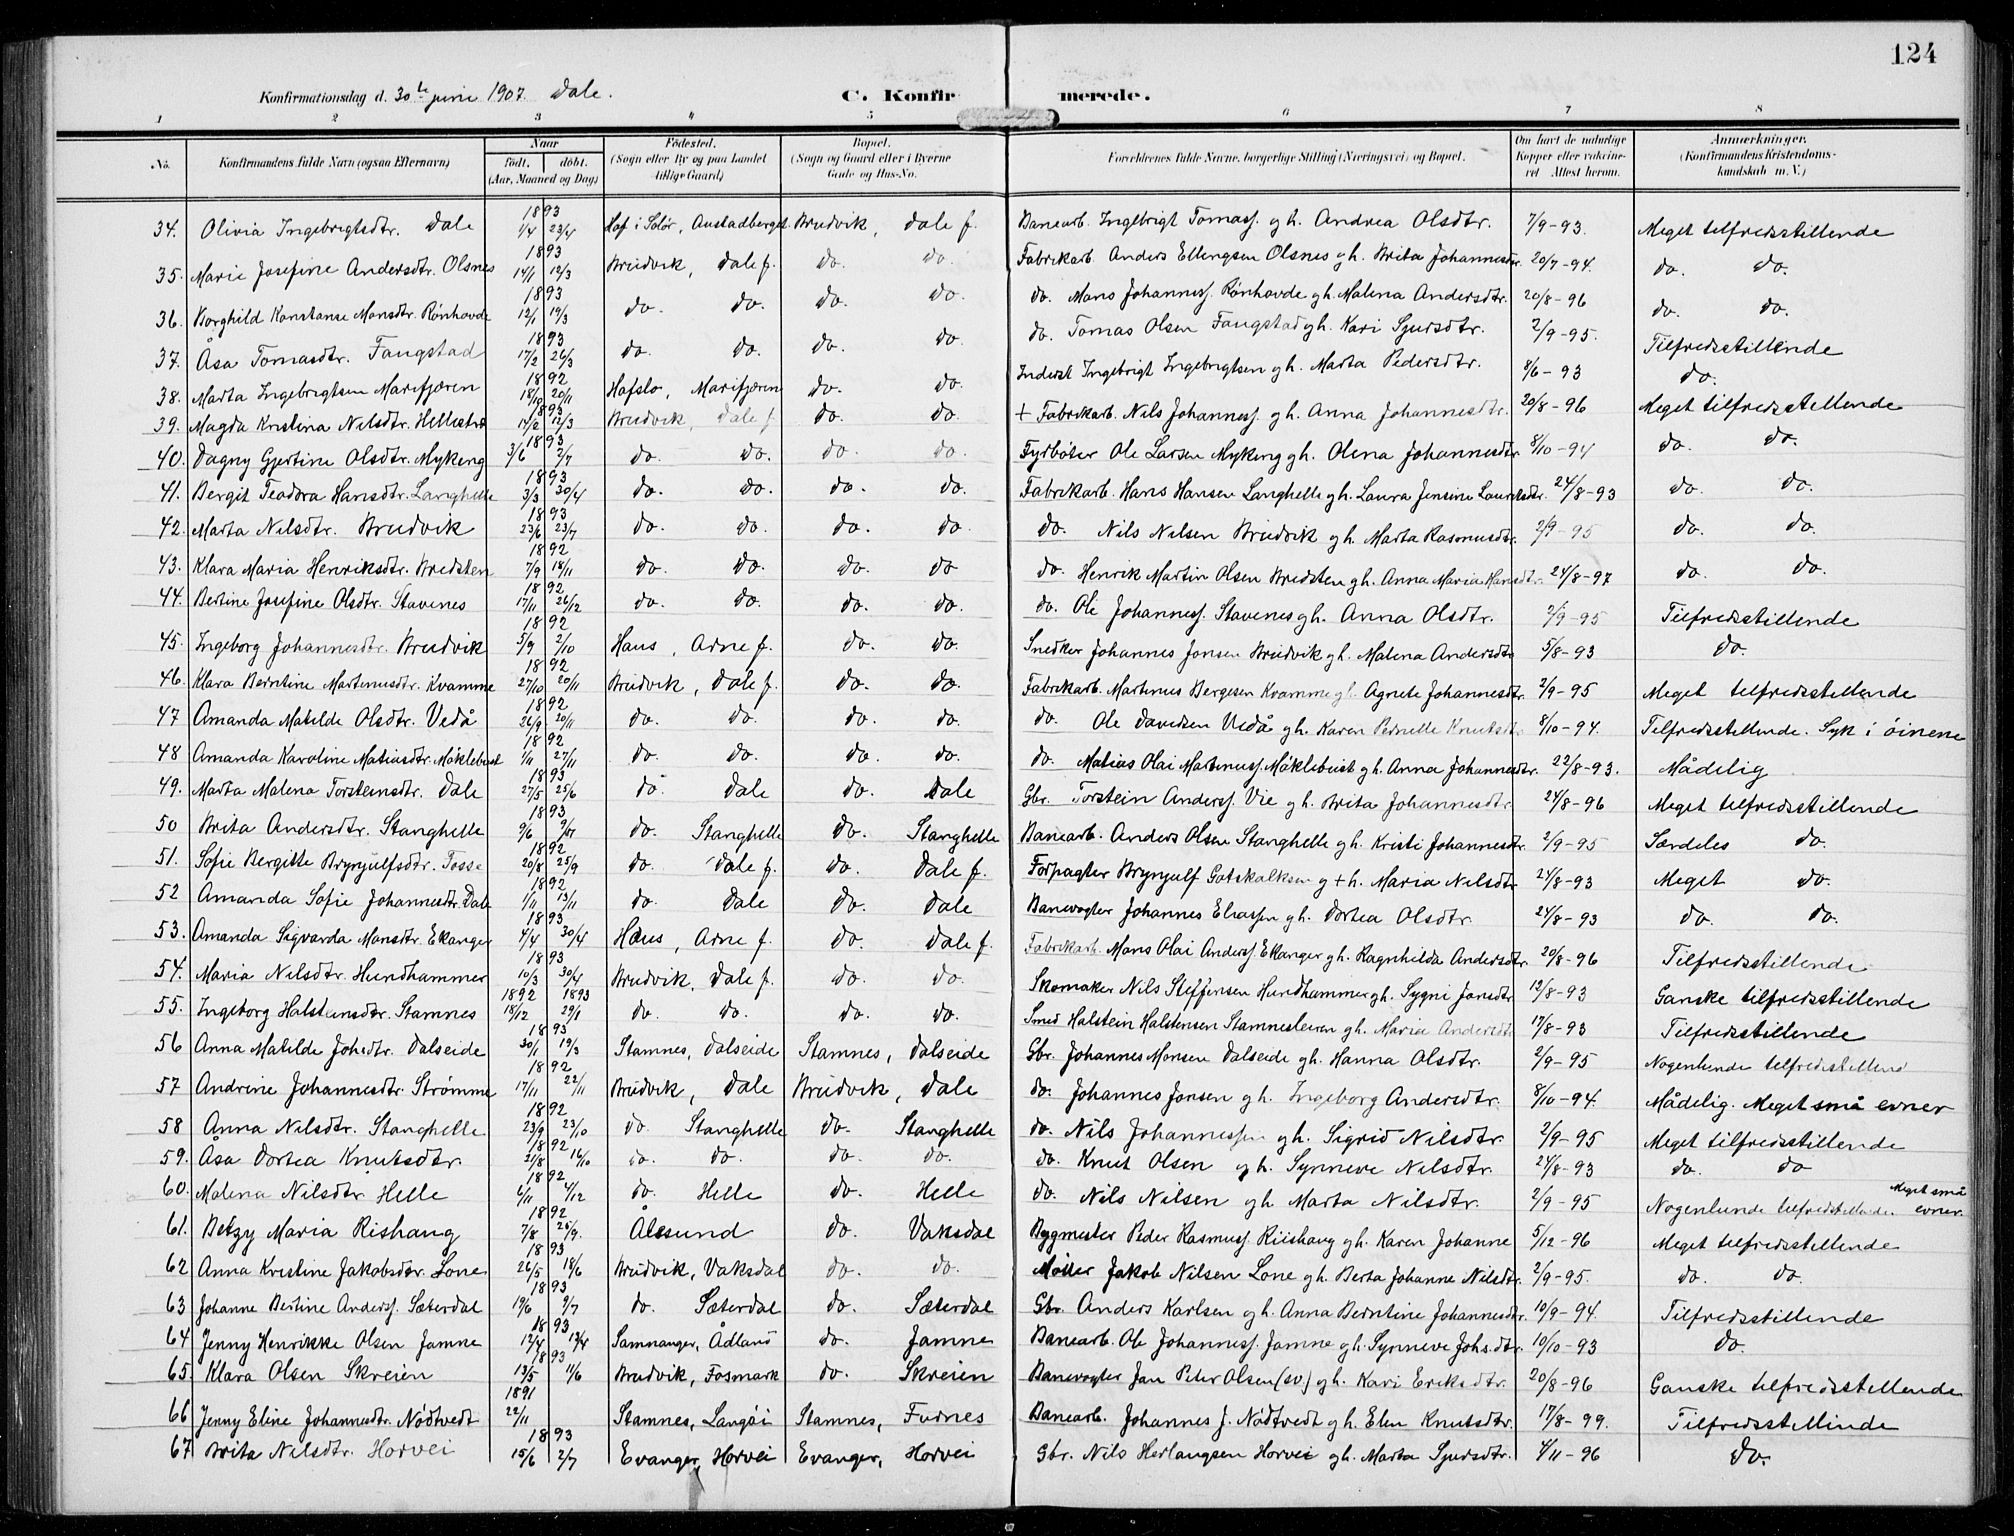 124
Konfirmationsdag d. 30te juni 1907. Dale. C. Konfirmerede.
1 2 3 4 5 6 7 8
No. Konfirmandens fulde Navn (ogsaa Efternavn) Naar født. døbt. (Aar, Maaned og Dag) Fødested. (Sogn eller By og paa Landet tillige Gaard) Bopæl. (Sogn og Gaard eller i Byerne Gade og Hus-No. Forældrenes fulde Navne, borgerlige Stilling (Næringsvei) og Bopæl. Om havt de naturlige Kopper eller vaccineret Attest herom. Anmærkninger. (Konfirmandens Kristendomskundskab m. V.)
34. Olivia Ingebrigtsdtr. Dale 1893 1/4 23/4 Hof i Solør, Austadberget Bruvik, Dale f. Banearb. Ingebrigt Tomass. gh. Andrea Olsdtr. 7/9-93. Meget tilfredsstillende
35. Marie Josefine Andersdtr. Olsnes 1893 14/1 12/3 Bruvik, Dale f. do. do. Fabrikarb. Anders Ellengsen Olsnes gh. Brita Johannesdtr. 20/7-94. do. do.
36. Borghild Konstanse Monsdtr. Rønhovde 1893 12/1 19/3 do. do. do. do. do. Mons Johanness. Rønhovde gh. Malena Andersdtr. 20/8-96 do. do.
37. Åsa Tomasdtr. Fangstad 1893 17/2 26/3 do. do. do. do. do. Tomas Olsen Fangstad gh. Kari Sjursdtr. 2/9-95. Tilfredsstillende
38. Marta Ingebrigtsen Marifjæren 1892 18/10 20/11 Hafslo, Marifjæren do. do. Inderst Ingebrigt Ingebrigtsen gh. Marta Pedersdtr. 8/6-93 do.
39. Magda Kristina Nilsdtr. Hellestrø 1893 14/2 12/3 Bruvik, Dale f. do. do. + Fabrikarb. Nils Johanness. gh. Anna Johannesdtr. 20/8-96 Meget tilfredsstillende
40. Dagny Gjertine Olsdtr. Myking 1893 3/6 2/7 do. do. do. do. Fyrbøter Ole Larsen Myking gh. Olena Johannesdtr. 8/10-94 do. do.
41. Bergit Teodora Hansdtr. Langhelle 1893 3/3 30/4 do. do. do. do. Fabrikarb. Hans Hansen Langhelle gh. Laura Jensine Lauritsdtr. 24/8-93 do. do.
42. Marta Nilsdtr. Bruvik 1893 23/6 23/7 do. do. do. do. do. Nils Nilsen Bruvik gh. Marta Rasmusdtr. 2/9-95 do. do.
43. Klara Maria Henriksdtr. Bredsten 1892 7/9 18/11 do. do. do. do do. Henrik Martin Olsen Bredsten gh. Anna Maria Hansdtr. 24/8-97 do. do.
44. Bertine Josefine Olsdtr. Stavenes 1892 17/11 26/12 do. do. do. do. do. Ole Johanness. Stavenes gh. Anna Olsdtr. 2/9-95 Tilfredsstillende
45. Ingeborg Johannesdtr. Bruvik 1892 5/9 2/10 Haus, Arne f. do. do. Snedker Johannes Jonsen Bruvik gh. Malena Andersdtr 5/8-93 do.
46. Klara Berntine Martinusdtr. Kvamme 1892 27/10 20/11 Bruvik, Dale f. do. do. Fabrikarb. Martinus Bergesen Kvamme gh. Agnete Johannesdtr. 2/9-95 Meget tilfredsstillende
47 Amanda Matilde Olsdtr. Vedå 1892 26/9 20/11 do. do. do. do. do. Ole Davidsen Vedå gh. Karen Pernille Knutsdtr. 8/10-94. Tilfredsstillende. Syk i öinene
48 Amanda Karoline Matiasdtr. Møklebust 1892 1/11 27/11 do. do. do. do. do. Matias Olai Martinuss. Møklebust gh. Anna Johannesdtr. 22/8-93. Mådelig
49. Marta Malena Torsteinsdtr. Dale 1893 27/5 25/6 do Dale do. Dale Gbr. Torstein Anderss. Vie gh. Brita Johannesdtr 24/8-96 Meget tilfredsstillende
50 Brita Andersdtr. Stanghelle 1893 9/6 9/7 do. Stanghelle do. Stanghelle Banearb. Anders Olsen Stanghelle gh. Kristi Johannesdtr. 2/9-95 Særdeles do.
51. Sofie Bergitte Brynjulfsdtr. Fosse 1892 20/8 25/9 do. Dale f. do. Dale f. Forpagter Brynjulf Gotskalksen g+h. Maria Nilsdtr 24/8-93 Meget do.
52 Amanda Sofie Johannesdtr. Dale 1892 1/11 13/11 do. Dale do. Dale Banevogter Johannes Eliassen gh. Dortea Olsdtr. 24/8-93 do. do.
53. Amanda Sigvarda Monsdtr. Ekanger 1893 4/4 30/4 Haus, Arne f. do. Dale f. Fabrikarb. Mons Olai Anderss. Ekanger gh. Ragnhilda Andersdtr. 20/8-96 Tilfredsstillende
54. Maria Nilsdtr. Hundhammer 1893 10/3 30/4 Bruvik, Dale f. do. do. Skomaker Nils Steffensen Hundhammer gh. Sygni Jonsdtr 13/8-93 Ganske tilfredsstillende
55. Ingeborg Halsteinsdtr. Stamnes 1892 18/12 1893 29/1 do. do. do. do. Smed Halstein Halstensen Stamnesleiren gh. Maria Andersdtr. 17/8-93 Tilfredsstillende
56 Anna Matilde Johsdtr. Dalseide 1893 30/1 19/3 Stamnes, Dalseide Stamnes, Dalseide Gbr. Johannes Monsen Dalseide gh. Hanna Olsdtr. 2/9-95 Nogenlunde tilfredsstillend
57 Andrine Johannesdtr. Strømme 1892 17/11 22/11 Bruvik, Dale Bruvik, Dale do. Johannes Jonsen gh. Ingeborg Andersdtr. 8/10-94. Mådelig. Meget små evner
58 Anna Nilsdtr. Stanghelle 1892 23/9 23/10 do Stanghelle do. Stanghelle do. Nils Johannessen gh. Sigrid Nilsdtr. 2/9-95 Meget tilfredsstillende
59. Åsa Dortea Knutsdtr. 1892 21/8 16/10 do. do. do. do. do. Knut Olsen gh. Synneve Nilsdtr. 24/8-93 do. do
60. Malena Nilsdtr. Helle 1892 6/11 4/12 do. Helle do. Helle do. Nils Nilsen gh. Marta Nilsdtr. 2/9-95 Nogenlunde tilfredsstillende. Meget små evner.
61. Betzy Maria Rishaug 1892 7/8 25/9. Ålesund do. Vaksdal Bygmester Peder Rasmuss. Riishaug gh. Karen Johanne 5/12-96 Meget tilfredsstillende
62 Anna Kristine Jakobsdtr. Lone 1893 26/5 18/6 Bruvik, Vaksdal do. do. Møller Jakob Nilsen Lone gh. Berta Johanne Nilsdtr. 2/9-95. do. do.
63 Johanne Bertine Anderss. Sæterdal 1893 19/6 9/7 do. Sæterdal do. Sæterdal Gbr. Anders Karlsen gh. Anna Berntine Johannesdtr. 10/9-94. Tilfredsstillende
64 Jenny Henrikke Olsen Jamne 1893 12/4 13/4 Samnanger, Ådland do. Jamne Banearb. Ole Johanness. Jamne gh. Synneve Johs.dtr. 10/10-93 do.
65. Klara Olsen Skreien 1893 13/5 11/6 Bruvik, Fosmark do. Skreien Banevogter Jan Peter Olsen (sv.) gh. Kari Eriksdtr. 20/8-96 Ganske tilfredsstillende
66 Jenny Eline Johannesdtr. Nødtvedt 1891 22/11 Stamnes, Langøi Stamnes, Furnes Banearb. Johannes J. Nødtvedt gh. Elen Knutsdtr. 17/8-99. Tilfredsstillinde
67 Brita Nilsdtr. Horvei 1893 15/6 2/7 Evanger, Horvei Evanger, Horvei Gbr. Nils Herlaugsen Horvei gh. Marta Sjursdtr. 4/11-96 do.